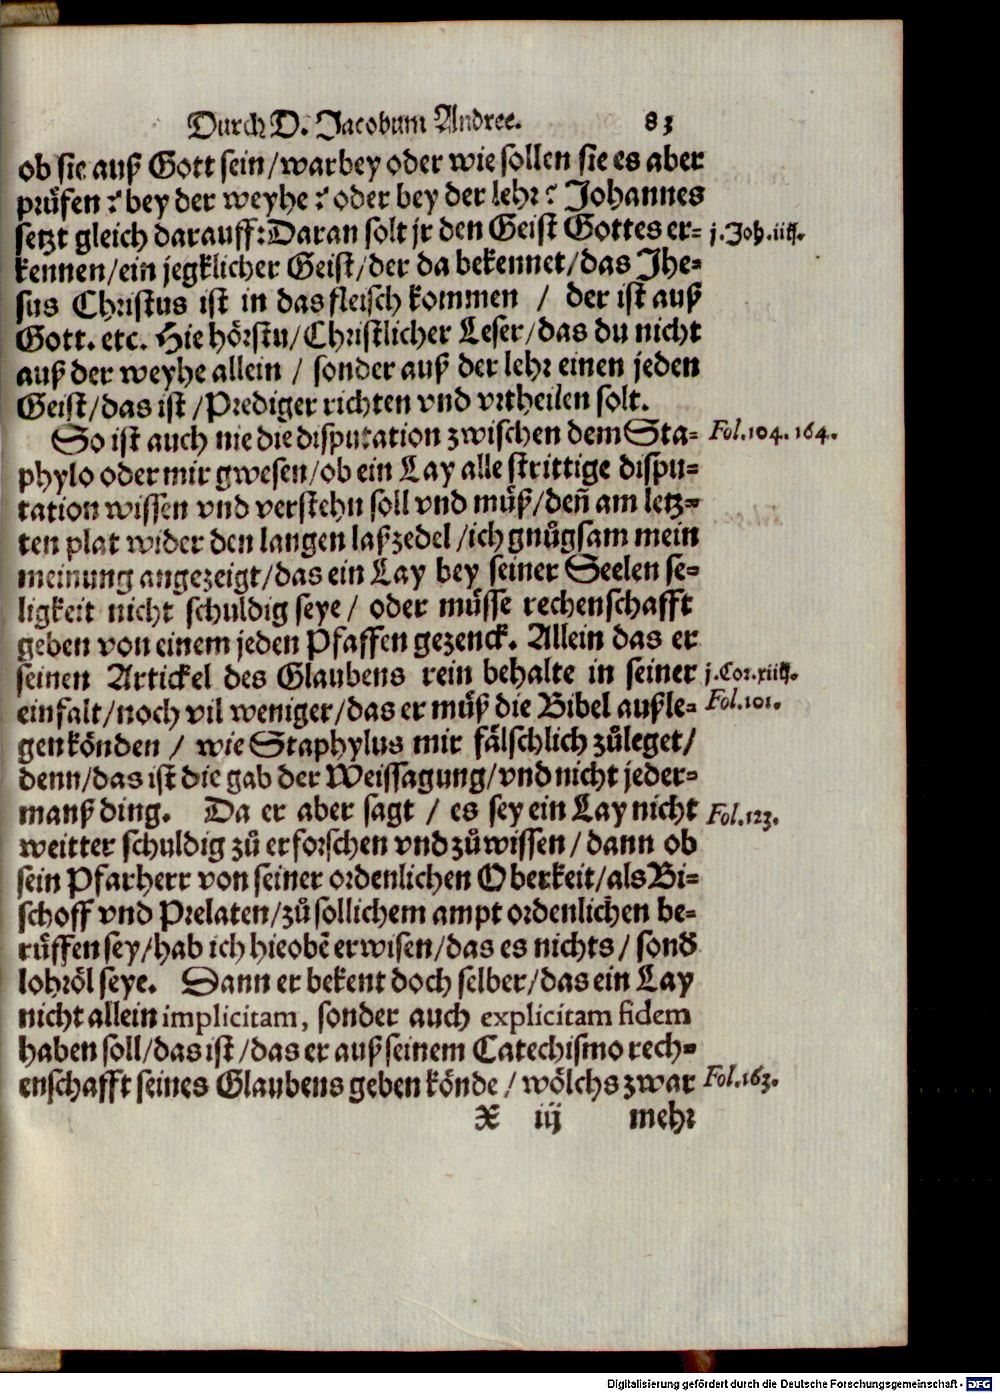 Durch D. Jacobum Andree. 83
ob sie auß Gott sein/warbey oder wie sollen sie es aber
prüfen? bey der weyhe? oder bey der lehr? Johannes
setzt gleich darauff: Daran solt jr den Geist Gottes er- j. Joh. iiij.
kennen/ein jegklicher Geist/der da bekennet/das Jhe-
sus Christus ist in das fleisch kommen / der ist auß
Gott. etc. Hie hörstu/Christlicher Leser/das du nicht
auß der weyhe allein / sonder auß der lehr einen jeden
Geist/das ist/Prediger richten vnd vrtheilen solt.
So ist auch nie die disputation zwischen dem Sta- Fol. 104. 164.
phylo oder mir gwesen/ob ein Lay alle strittige dispu-
tation wissen vnd verstehn soll vnd muͤß/deñ am letz-
ten plat wider den langen laßzedel/ich gnuͦgsam mein
meinung angezeigt/das ein Lay bey seiner Seelen se-
ligkeit nicht schuldig seye/ oder muͤsse rechenschafft
geben von einem jeden Pfaffen gezenck. Allein das er
seinen Artickel des Glaubens rein behalte in seiner j. Cor. xiiij.
einfalt/noch vil weniger/das er muͤß die Bibel außle- Fol. 101.
gen könden / wie Staphylus mir fälschlich zuͦleget/
denn/das ist die gab der Weissagung/vnd nicht jeder-
manß ding. Da er aber sagt / es sey ein Lay nicht Fol. 123.
weitter schuldig zuͦ erforschen vnd zuͦ wissen/dann ob
sein Pfarherr von seiner ordenlichen Oberkeit/als Bi-
schoff vnd Prelaten/zuͦ sollichem ampt ordenlichen be-
ruͤffen sey/hab ich hieobẽ erwisen/das es nichts/ sond̃
lohröl seye. Dann er bekent doch selber/das ein Lay
nicht allein implicitam, sonder auch explicitam fidem
haben soll/das ist/das er auß seinem Catechismo rech-
enschafft seines Glaubens geben könde/ wölchs zwar Fol. 163.
X iij mehr
Digitalisierung gefördert durch die Deutsche Forschungsgemeinschaft - DFG